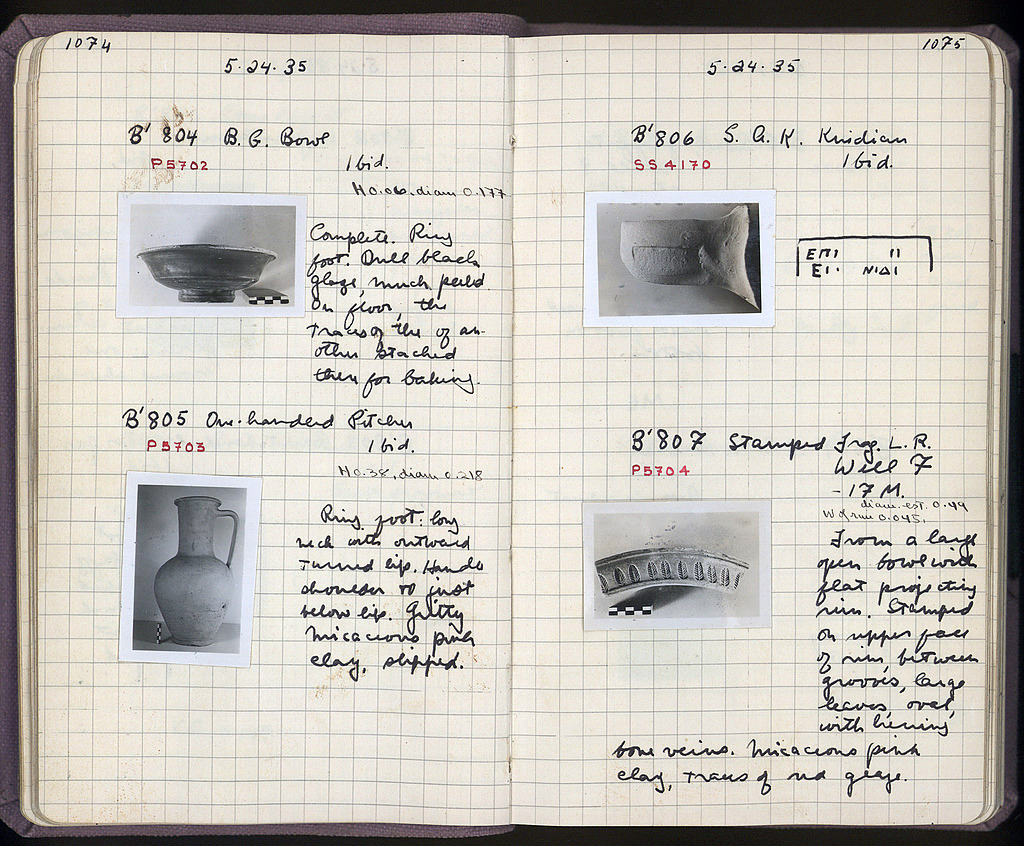 1074
5·24·35
B' 804 B.G. Bowl
P5702
1 bid.
H 0.06, diam 0.177
Complete. Ring
foot. Dull black
glaze, much peeled.
On floor, the
traces of the of an-
other stacked
then for baking.
B' 805 One-handled Pitcher
P5703
1 bid.
H 0.38, diam 0.218
Ring foot: long
neck with outward
turned lip. Handle
shoulder to just
below lip. Gritty
micaceous pink
clay, slipped.
1075
5·24·35
B' 806 S.A.K. Knidian
SS4170
1 bid.
ΕΠΙ Π
ΕΙ·· ΝΙΔΙ
B' 807 Stamped Frag. L.R.
P5704
Well F
-17 M.
diam. est. 0.49
W of rim 0.045.
From a large
open bowl with
flat projecting
rim. Stamped
on upper face
of rim, between
grooves, large
leaves, oval,
with
bone veins. Micaceous pink
clay, traces of red glaze.